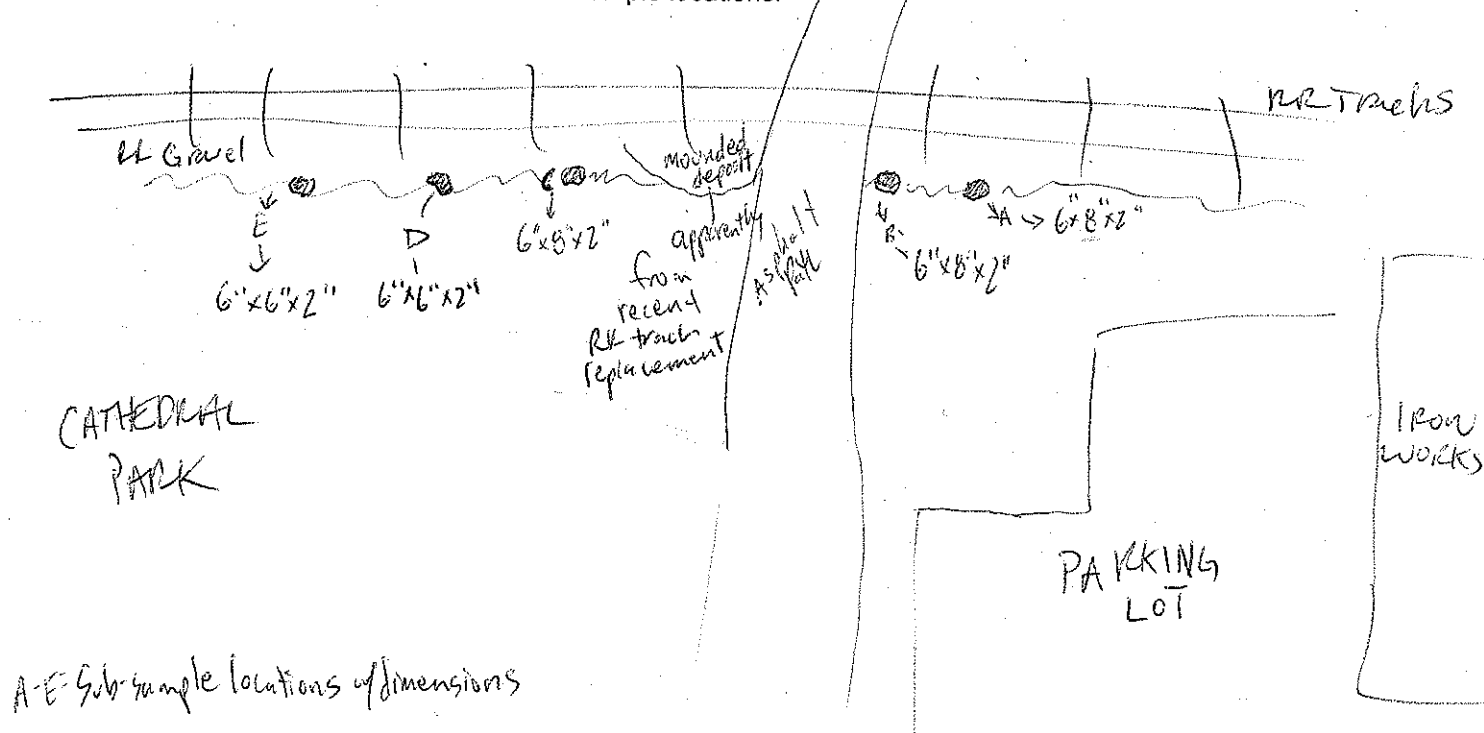 RR Tracks
RR Gravel
mounded
deposit
apparently
from
recent
RR track
replacement
Asphalt
Path
E
6"x6"x2"
D
6"x6"x2"
C
6"x8"x2"
B
6"x8"x2"
A → 6"x8"x2"
CATHEDRAL
PARK
IRON
WORKS
PARKING
LOT
A-E-Sub-sample locations w/dimensions